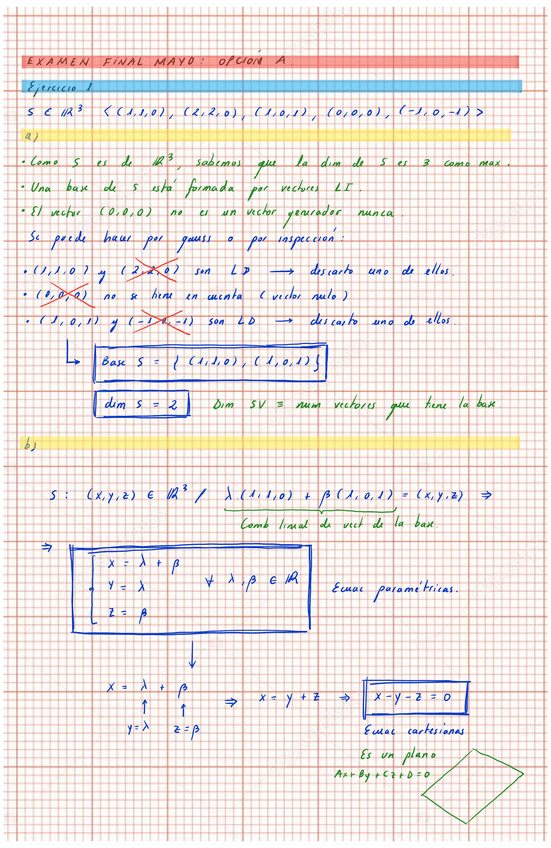 EXAMEN FINAL MAYO: OPCIÓN A
Ejercicio 1
S ⊂ ℝ³ < (1,1,0), (2,2,0), (1,0,1), (0,0,0), (-1,0,-1) >
a)
• Como S es de ℝ³, sabemos que la dim de S es 3 como max.
• Una base de S está formada por vectores LI.
• El vector (0,0,0) no es un vector generador nunca.
Se puede hacer por gauss o por inspección:
• (1,1,0) y (2,2,0) son LD → descarto uno de ellos.
• (0,0,0) no se tiene en cuenta (vector nulo)
• (1,0,1) y (-1,0,-1) son LD → descarto uno de ellos.
Base S = { (1,1,0), (1,0,1) }
dim S = 2 Dim SV ≡ num vectores que tiene la base
b)
S: (x,y,z) ∈ ℝ³ / λ(1,1,0) + β(1,0,1) = (x,y,z) ⇒
Comb lineal de vect de la base.
⇒ x = λ + β
y = λ ∀ λ,β ∈ ℝ Ecuac paramétricas.
z = β
x = λ + β ⇒ x = y + z ⇒ x-y-z = 0
y=λ z=β Ecuac cartesianas
Es un plano
Ax+By+Cz+D=0